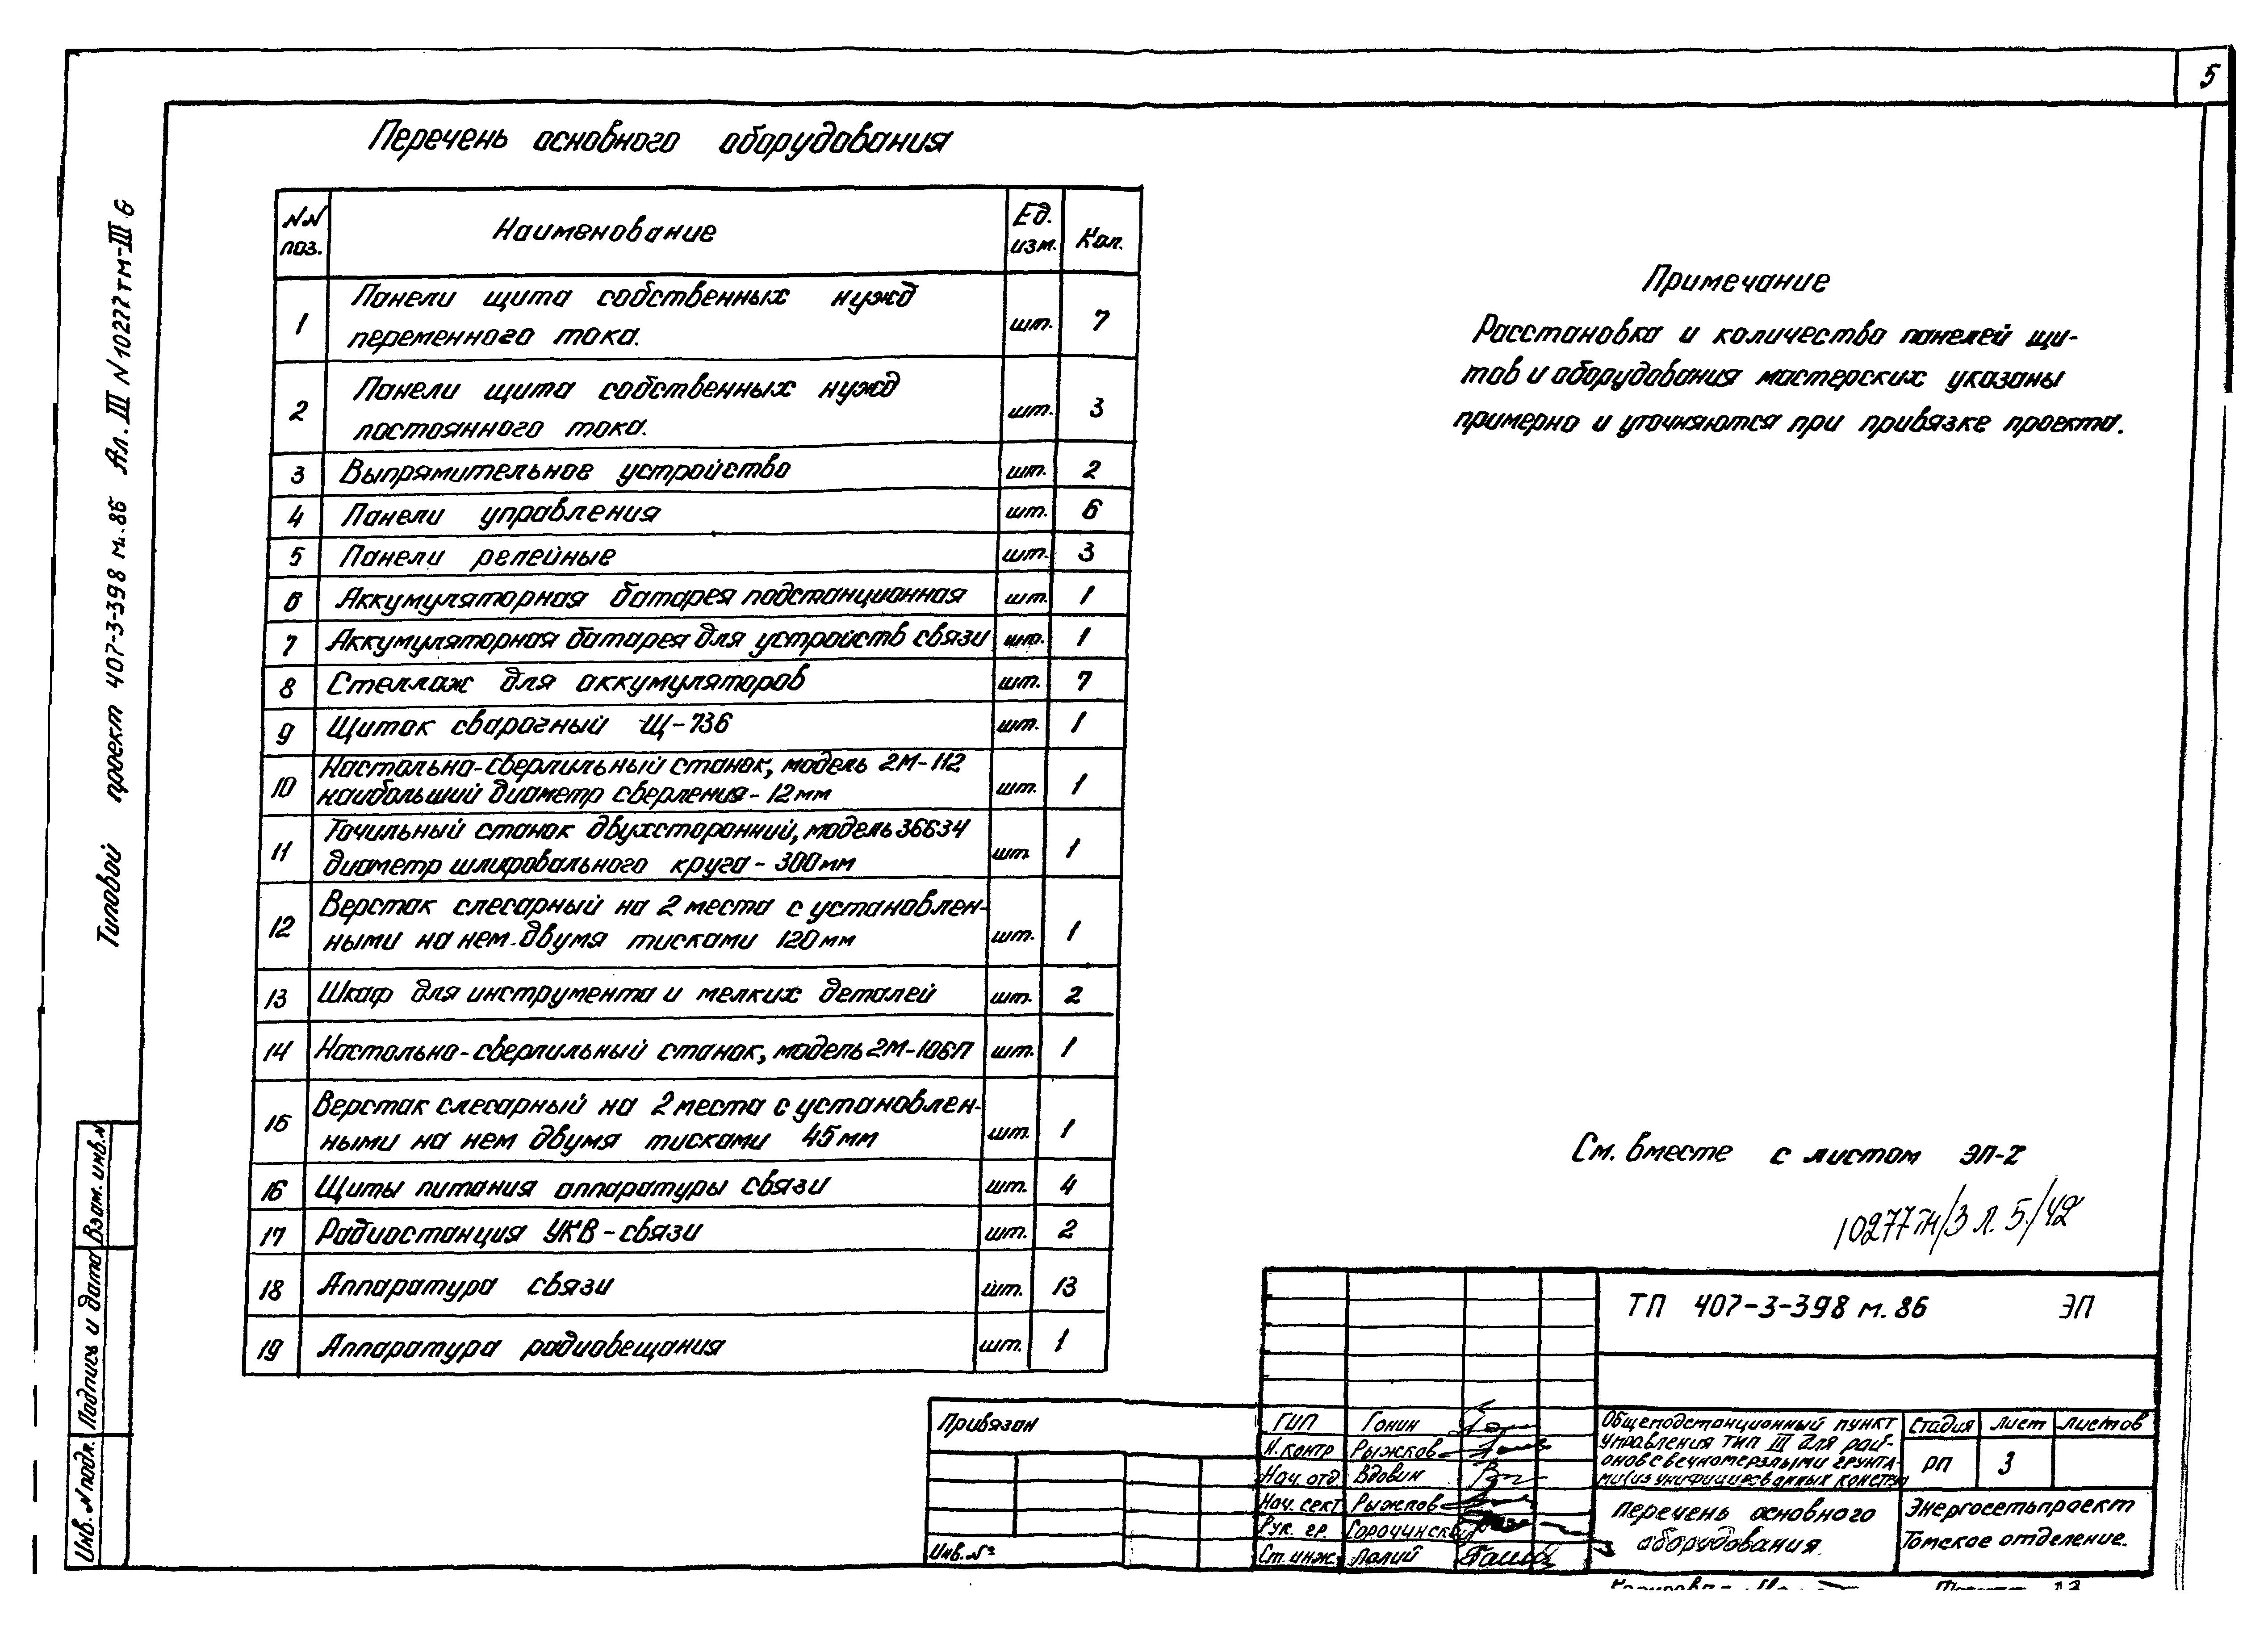 5
Типовой проект 407-3-398 м.86 Ал. III N 10277тм-III 6
Перечень основного оборудования
NN поз. Наименование Ед. изм. Кол.
1 Панели щита собственных нужд
переменного тока. шт. 7
2 Панели щита собственных нужд
постоянного тока. шт. 3
3 Выпрямительное устройство шт. 2
4 Панели управления шт. 6
5 Панели релейные шт. 3
6 Аккумуляторная батарея подстанционная шт. 1
7 Аккумуляторная батарея для устройств связи шт. 1
8 Стеллаж для аккумуляторов шт. 7
9 Щиток сварочный Щ-736 шт. 1
10 Настольно-сверлильный станок, модель 2М-112
наибольший диаметр сверления - 12мм шт. 1
11 Точильный станок двухсторонний, модель 3Б634
диаметр шлифовального круга - 300мм шт 1
12 Верстак слесарный на 2 места с установлен-
ными на нем двумя тисками 120мм шт. 1
13 Шкаф для инструмента и мелких деталей шт. 2
14 Настольно-сверлильный станок, модель 2М-106П шт. 1
16 Верстак слесарный на 2 места с установлен-
ными на нем двумя тисками 45мм шт. 1
16 Щиты питания аппаратуры связи шт. 4
17 Радиостанция УКВ-связи шт. 2
18 Аппаратура связи шт. 13
19 Аппаратура радиовещания шт. 1
Примечание
Расстановка и количество панелей щи-
тов и оборудования мастерских указаны
примерно и уточняются при привязке проекта.
См. вместе с листом ЭП-2
10277тм/3 л. 5/42
Взам. инв. N
Подпись и дата
Инв. N подл.
Привязан
Инв. №
ГИП Гонин
Н. контр Рыжков
Нач. отд. Вдовин
Нач. сект Рыжков
Рук. гр.
Ст. инж. Палий
ТП 407-3-398 м. 86 ЭП
Общеподстанционный пункт
управления тип III для рай-
онов с вечномерзлыми грунта-
ми (из унифицированных констру
стадия лист листов
РП 3
перечень основного
оборудования.
Энергосетьпроект
Томское отделение.